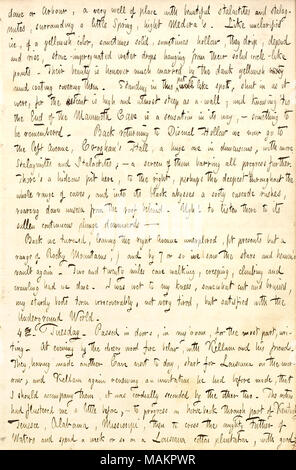 dame or Arbour, a very well of place with beautiful stalactites and stalag-
mites, surrounding a little spring, hight Medora's. Like unclarified
ice, of a yellowish color, sometimes solid, sometimes hollow, they drop, depend
and rise; stone-impregnated water drops hanging from their solid icicle-like
points. Their beauty is however much marred by the dark yellowish
and coating covering them. Standing in this well like spot, shut in as it
were, for the extreme is high and almost steep as a wall; and knowing tis
the End of the Mammoth Cave is a sensation in its way, — something to
be remembered. Back returning to Dismal Hollow we now go to
the left avenue, Croghan's Hall, a huge one in dimensions, with more
Stalagmites and Stalactites, — a screen of them barring all progress further.
There's a hideous pit here, to the right, perhaps the deepest throughout the
whole range of caves, and into its black abysses a sooty cascade dashes,
roaring down unseen from the roof behind. Ugh! to listen there to its
sullen continuous plunge downwards —
Back we turned, leaving the right avenue unexplored, for presents but a
range of Rocky Mountains; and by 7 or so we saw the stars and heavenly
vault again. Two and twenty miles cave walking, creeping, climbing and
crawling had we done. I was wet to my knees, somewhat cut and bruised,
my sturdy boots torn irrecoverably, not very tired, but satisfied with the
Underground World.
4. Tuesday. Passed in doors, in my room, for the most part, wri-
ting. At evening by the cheery wood fire below, with Kellam and his friend.
They, having made another Cave visit to day, start for Louisiana on the mor-
row; and Kellam again renewing an invitation he had before made, that
I should accompany them, it was cordially seconded by the other two. The notion
had flustered me a little before, — to progress on horse back through part of Kentucky
Tennessee, Alabama, Mississippi, then to cross the mighty Father of
Waters and spend a week or so on a Louisiana cotton plantation, with good
Image ID: MAKPWR
www.alamy.com